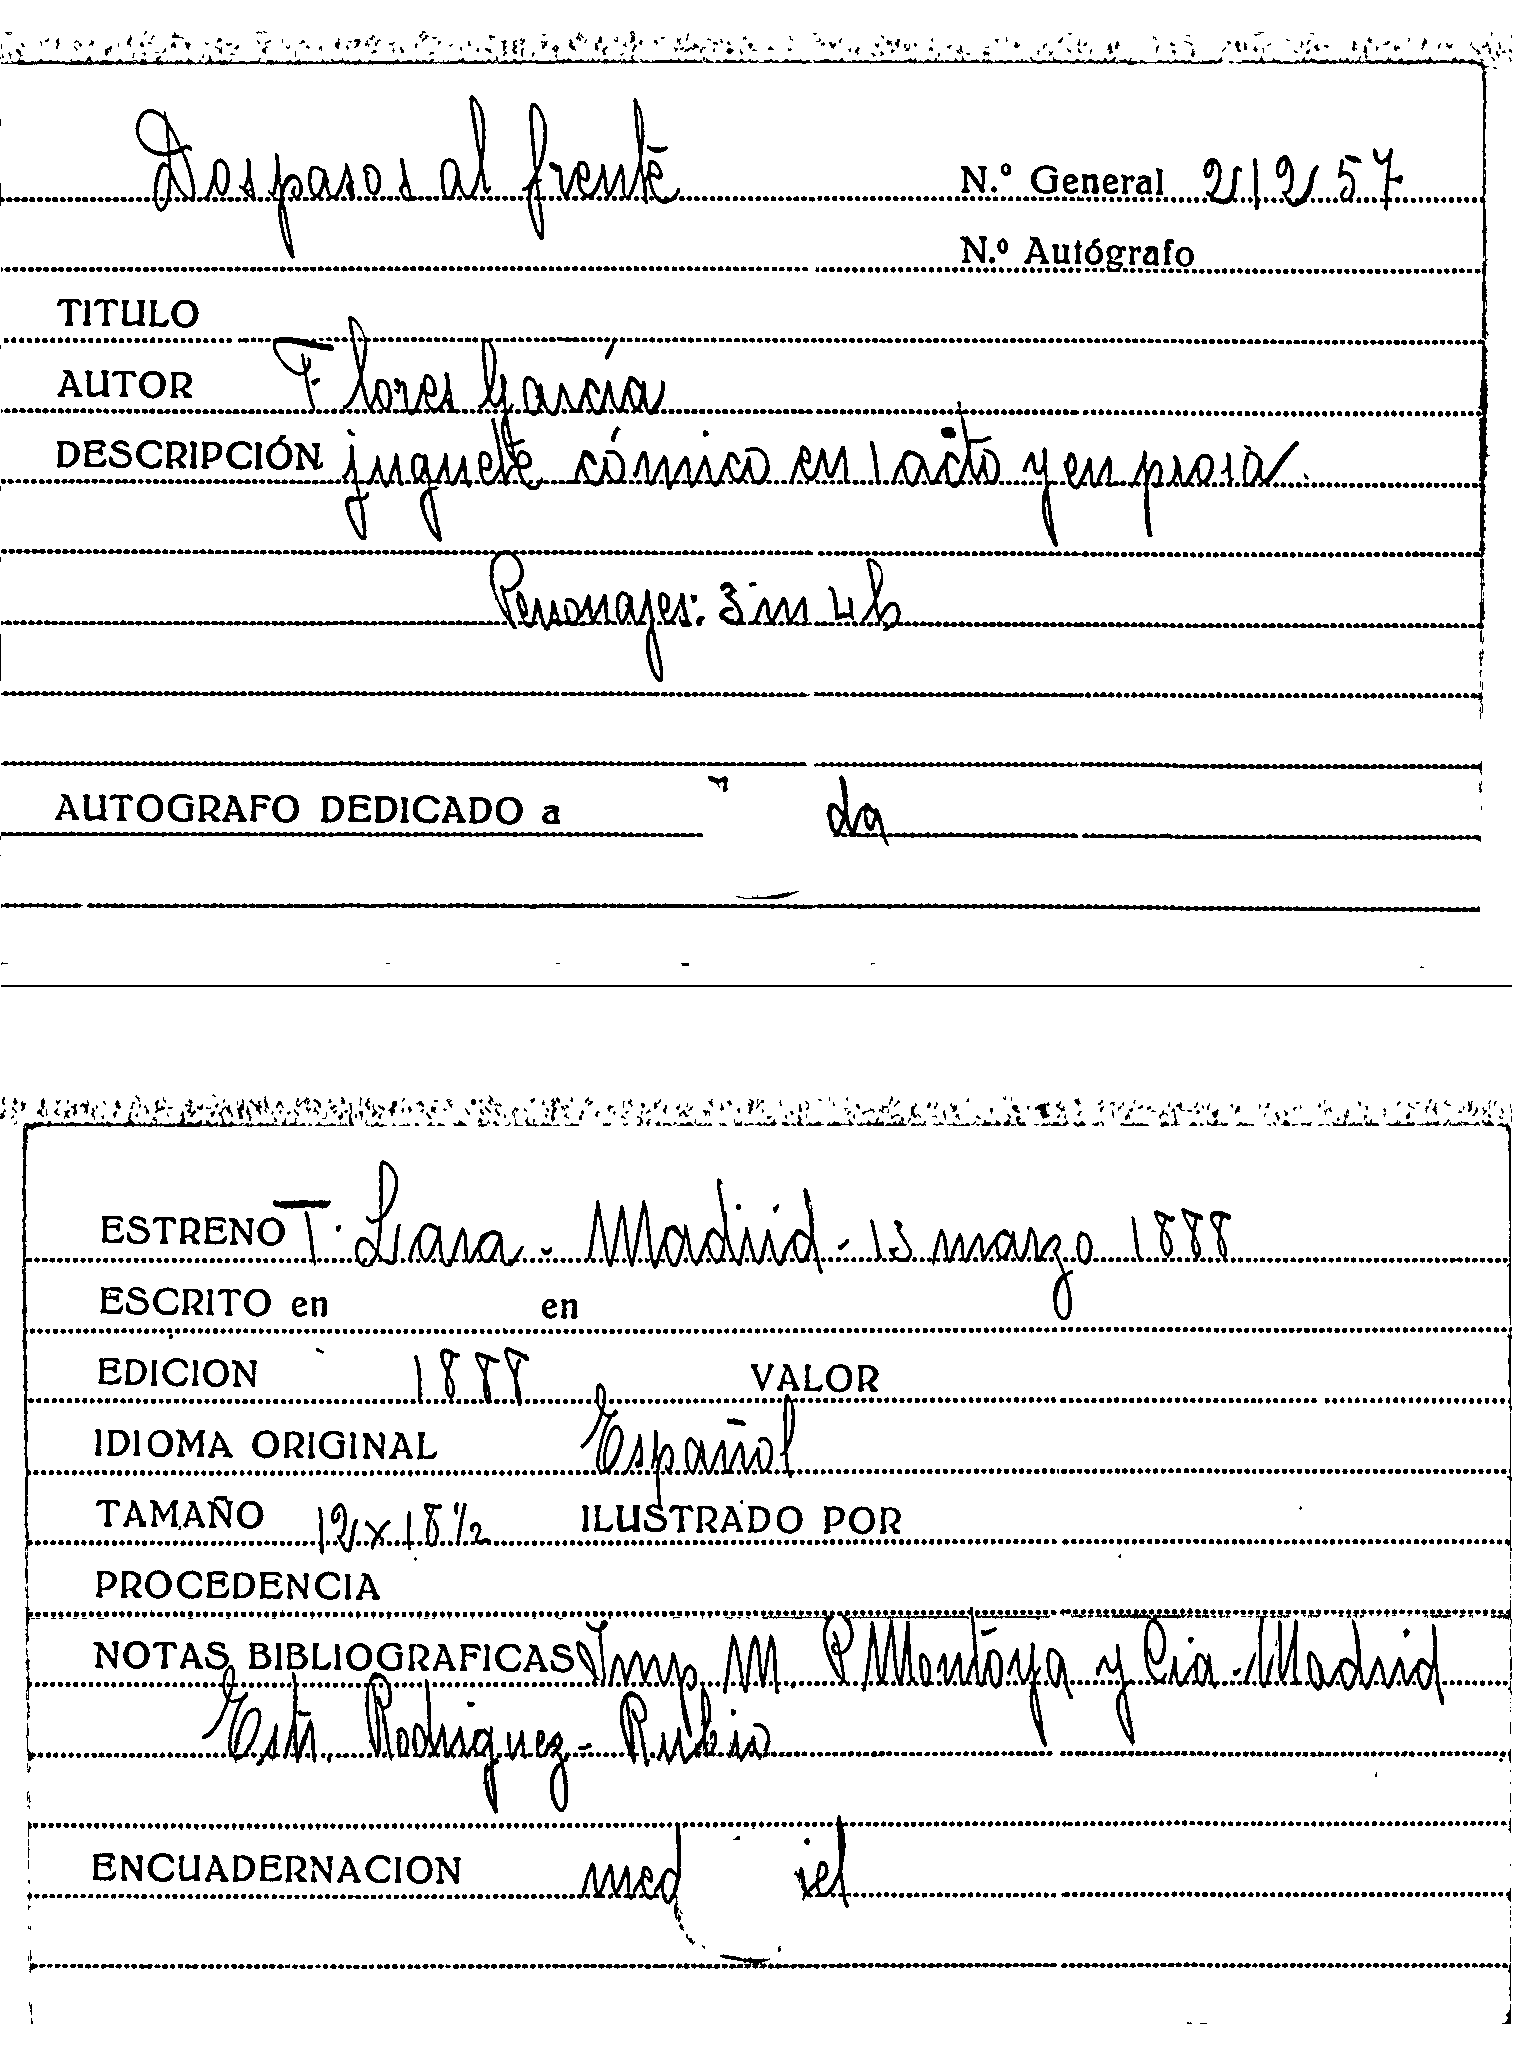 Dos pasos al frente N.º General 21257
N.º Autógrafo
TITULO
AUTOR F. Flores García
DESCRIPCIÓN juguete cómico en 1 acto y en prosa.
Personajes: 3 m 4 h
AUTOGRAFO DEDICADO a
ESTRENO T. Lara - Madrid - 13 marzo 1888
ESCRITO en en
EDICION 1888 VALOR
IDIOMA ORIGINAL Español
TAMAÑO 12 x 18 1/2 ILUSTRADO POR
PROCEDENCIA
NOTAS BIBLIOGRAFICAS Imp. M. P. Montoya y Cia - Madrid
Estr. Rodriguez - Rubio
ENCUADERNACION